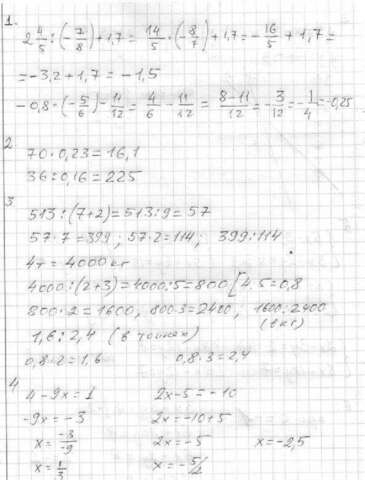 1.
2 4/5 : (-7/8) + 1,7 = 14/5 · (-8/7) + 1,7 = -16/5 + 1,7 =
= -3,2 + 1,7 = -1,5
-0,8 · (-5/6) - 11/12 = 4/6 - 11/12 = 8-11/12 = -3/12 = -1/4 = -0,25
2
70 · 0,23 = 16,1
36 : 0,16 = 225
3
513 : (7+2) = 513 : 9 = 57
57 · 7 = 399 ; 57 · 2 = 114 ; 399 : 114
4т = 4000 кг
4000 : (2+3) = 4000 : 5 = 800 [4:5 = 0,8
800 · 2 = 1600, 800 · 3 = 2400, 1600 : 2400
(в кг)
1,6 : 2,4 (в тоннах)
0,8 · 2 = 1,6 0,8 · 3 = 2,4
4
4 - 9x = 1 2x - 5 = -10
-9x = -3 2x = -10 + 5
x = -3/-9 2x = -5 x = -2,5
x = 1/3 x = -5/2